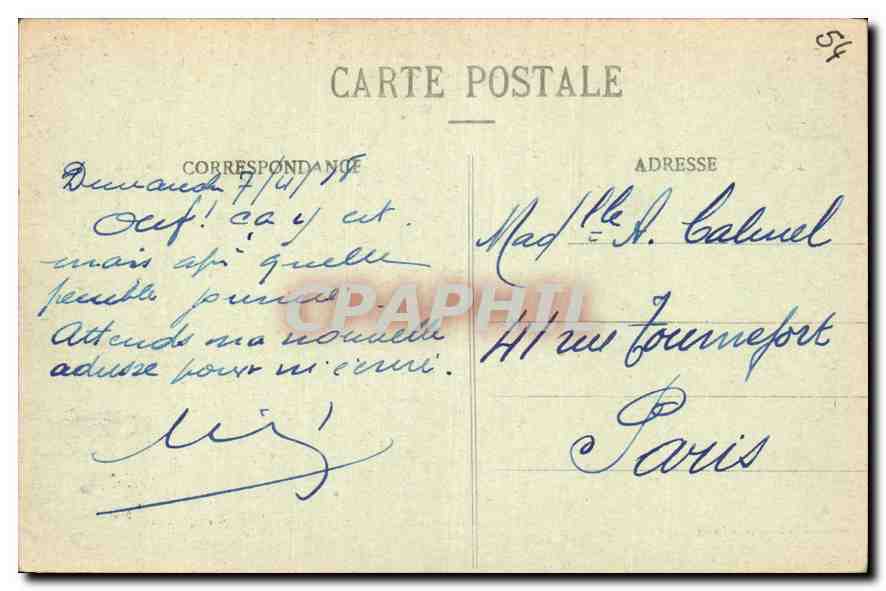 54
CARTE POSTALE
CORRESPONDANCE
ADRESSE
Dimanche 7/4/18
Ouf! ça y est.
mais apr quelle
pénible journée.
Attends ma nouvelle
adresse pour m'écrire.
Madlle A. Calmel
41 rue Tournefort
Paris
CPAPHIL